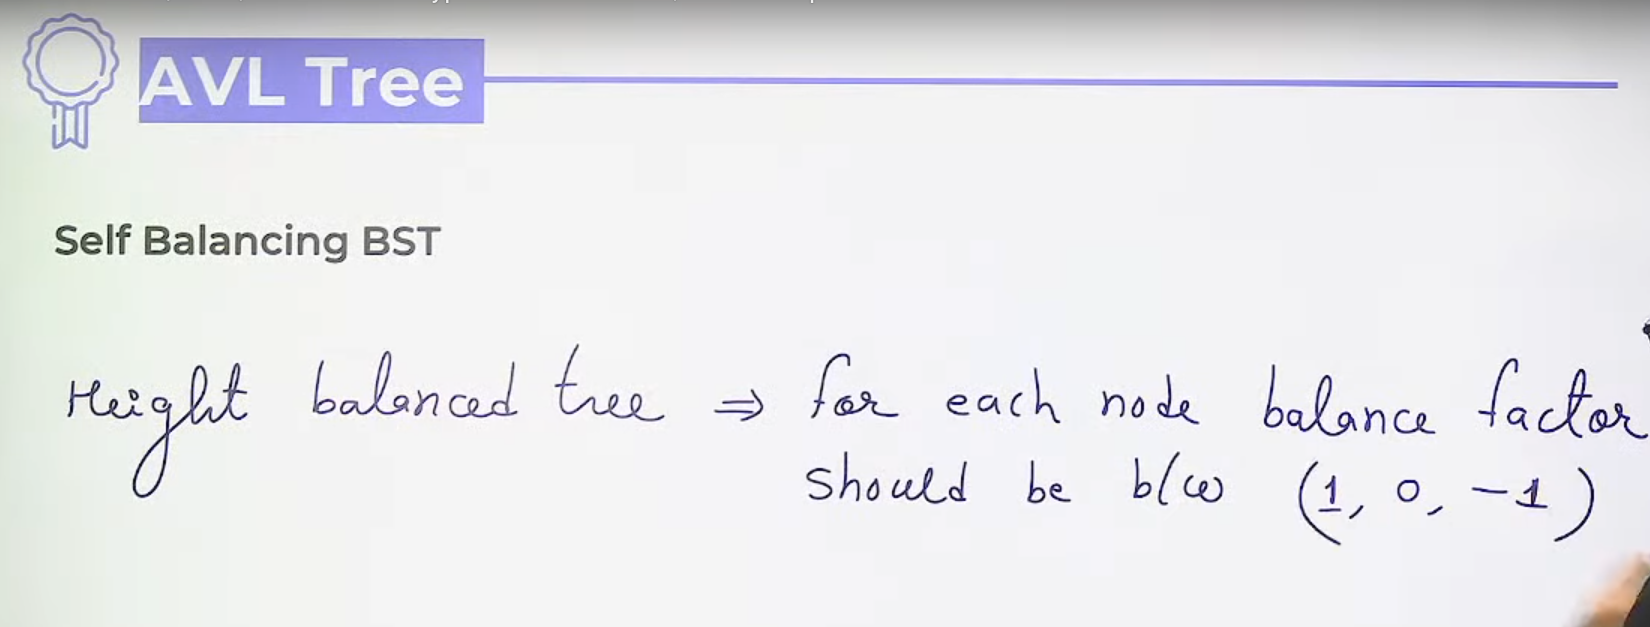 AVL Tree
Self Balancing BST
Height balanced tree ⇒ for each node balance factor
should be b/w (1, 0, -1)